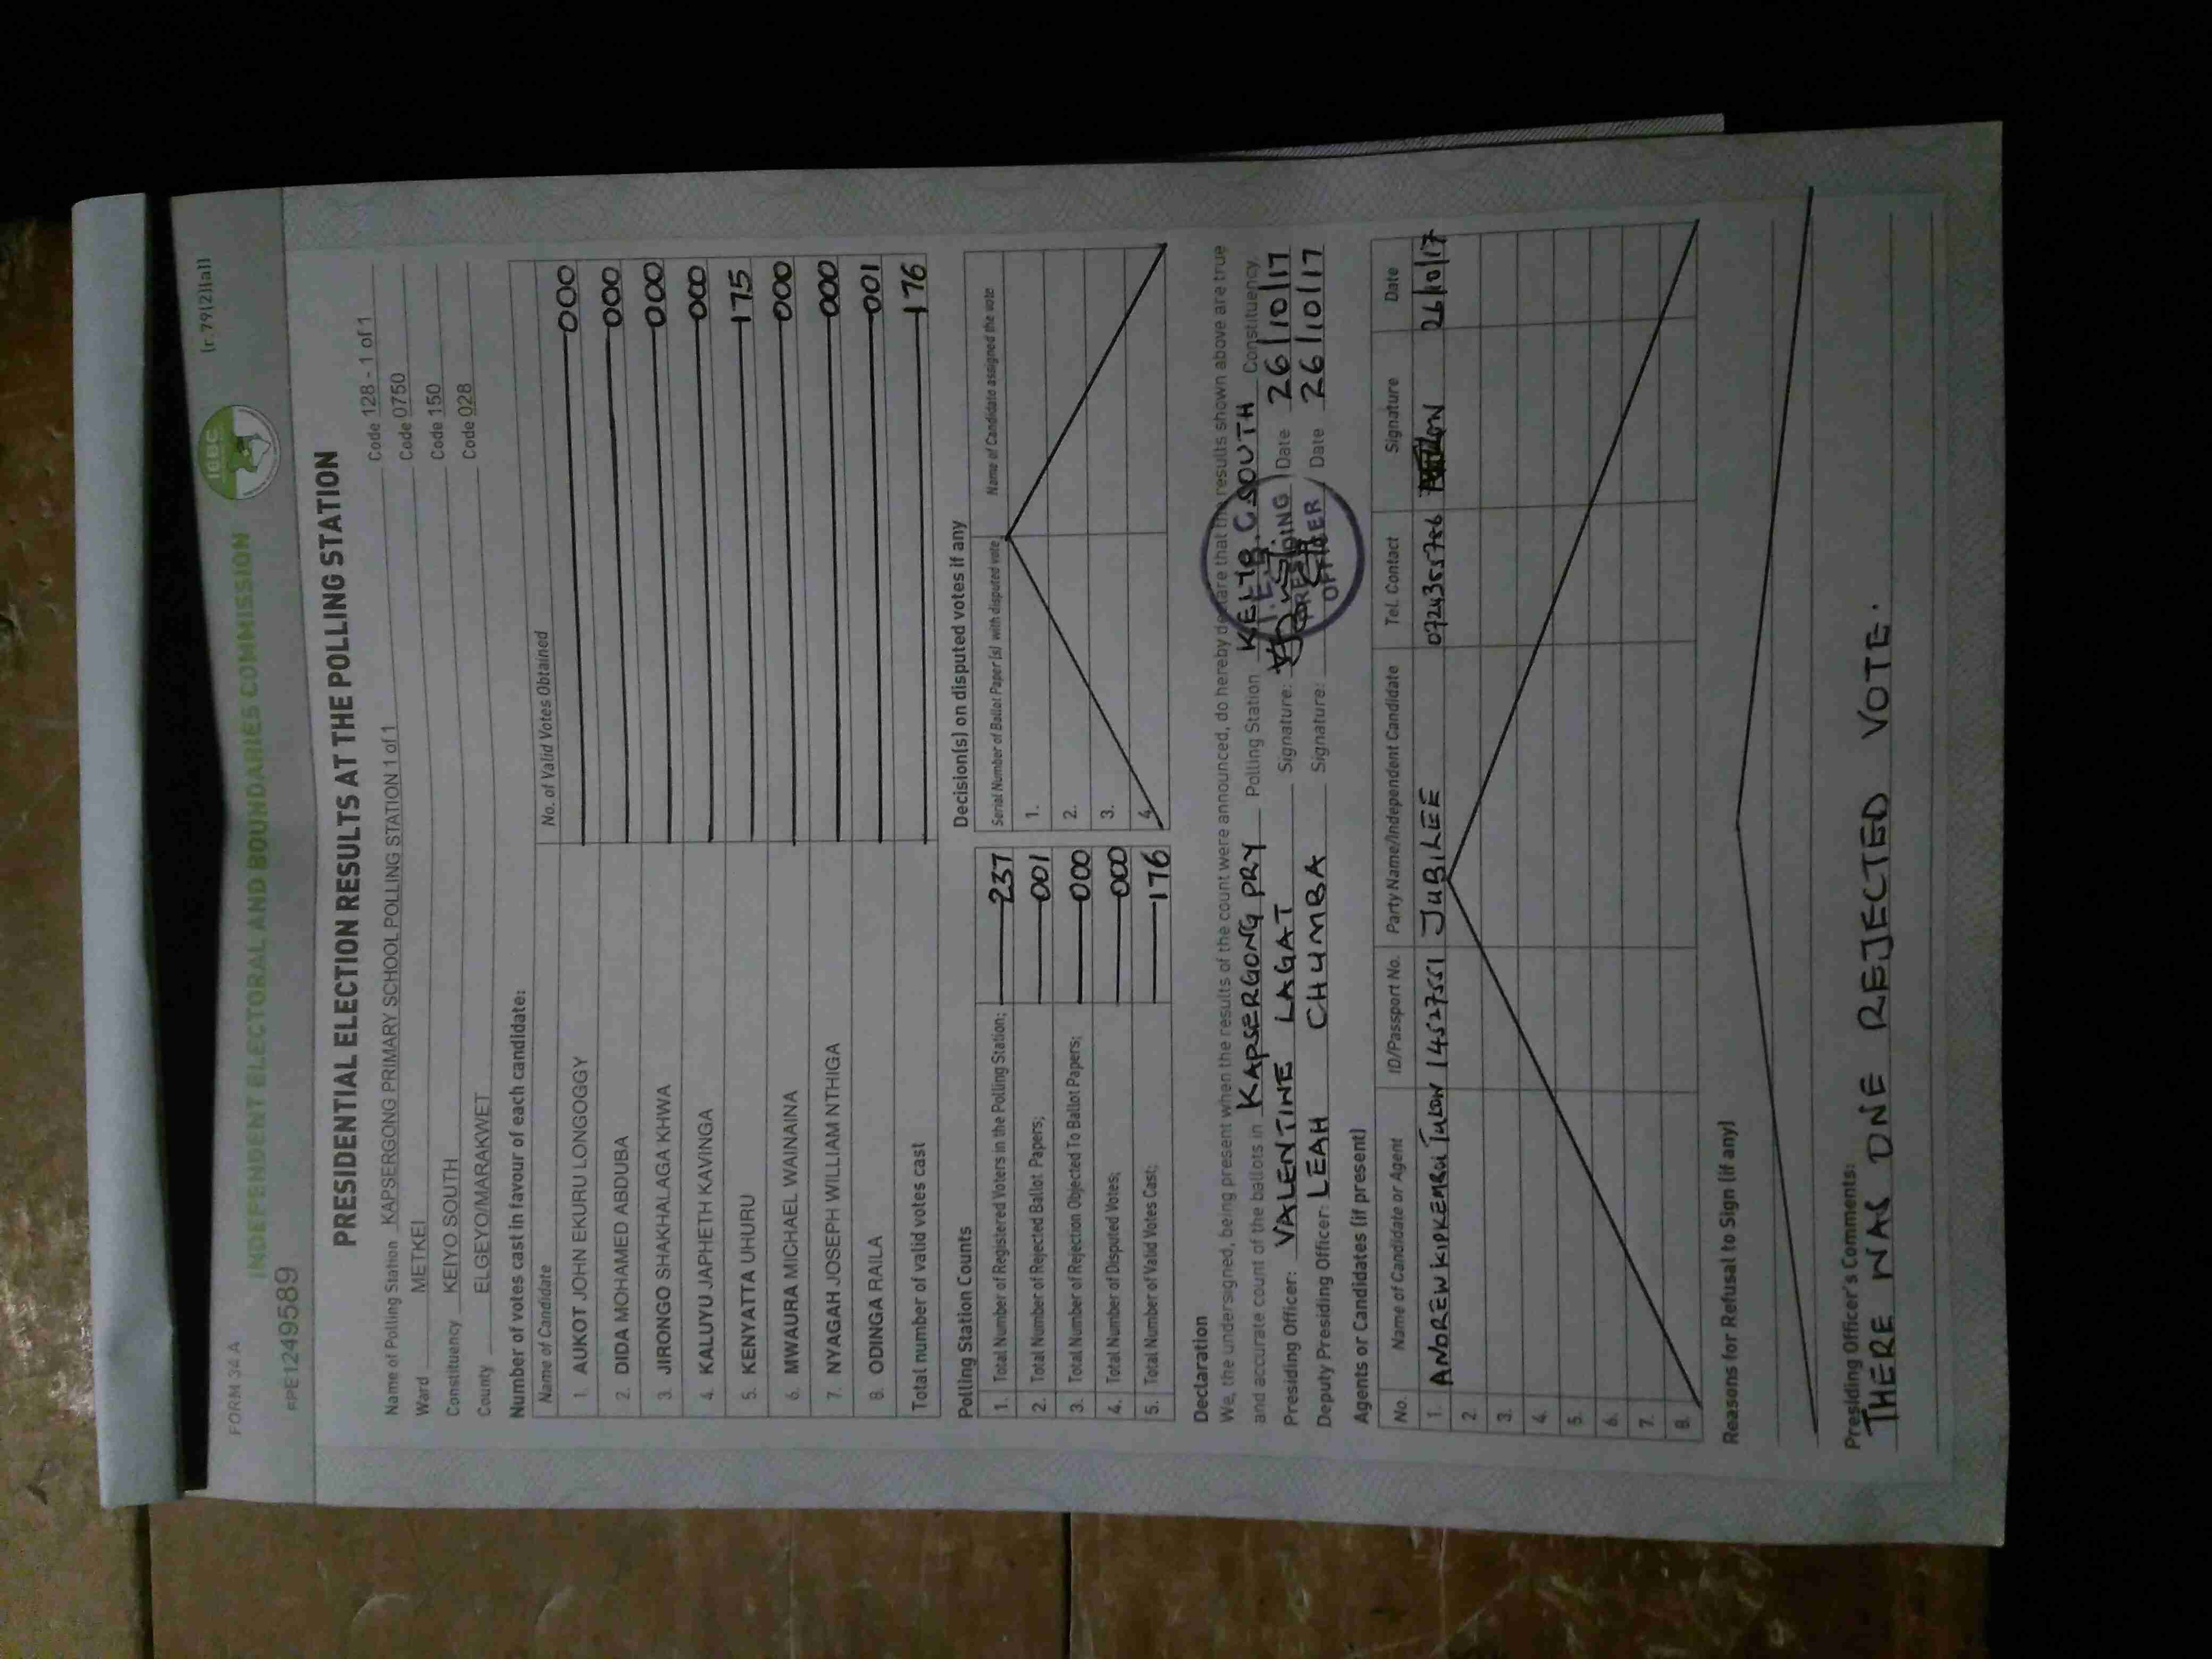 FORM 34 A
(r.79(2)(a))
INDEPENDENT ELECTORAL AND BOUNDARIES COMMISSION
IEBC
PPE1249589
PRESIDENTIAL ELECTION RESULTS AT THE POLLING STATION
Name of Polling Station KAPSERGONG PRIMARY SCHOOL POLLING STATION 1 of 1 Code 128 - 1 of 1
Ward METKEI Code 0750
Constituency KEIYO SOUTH Code 150
County ELGEYO/MARAKWET Code 028
Number of votes cast in favour of each candidate:
Name of Candidate No. of Valid Votes Obtained
1. AUKOT JOHN EKURU LONGOGGY 000
2. DIDA MOHAMED ABDUBA 000
3. JIRONGO SHAKHALAGA KHWA 000
4. KALUYU JAPHETH KAVINGA 000
5. KENYATTA UHURU 175
6. MWAURA MICHAEL WAINAINA 000
7. NYAGAH JOSEPH WILLIAM NTHIGA 000
8. ODINGA RAILA 001
Total number of valid votes cast 176
Polling Station Counts
1. Total Number of Registered Voters in the Polling Station; 237
2. Total Number of Rejected Ballot Papers; 001
3. Total Number of Rejection Objected To Ballot Papers; 000
4. Total Number of Disputed Votes; 000
5. Total Number of Valid Votes Cast; 176
Decision(s) on disputed votes if any
Serial Number of Ballot Paper(s) with disputed vote Name of Candidate assigned the vote
1.
2.
3.
4.
Declaration
We, the undersigned, being present when the results of the count were announced, do hereby declare that the results shown above are true
and accurate count of the ballots in KAPSERGONG PRY Polling Station KEIYO SOUTH Constituency.
Presiding Officer: VALENTINE LAGAT Signature: Date 26/10/17
Deputy Presiding Officer: LEAH CHUMBA Signature: Date 26/10/17
PRESIDING
OFFICER
Agents or Candidates (if present)
No. Name of Candidate or Agent ID/Passport No. Party Name/Independent Candidate Tel. Contact Signature Date
1. ANDREW KIPKEMBOI 14527551 JUBILEE 26/10/17
2.
3.
4.
5.
6.
7.
8.
Reasons for Refusal to Sign (if any)
Presiding Officer's Comments:
THERE WAS ONE REJECTED VOTE.